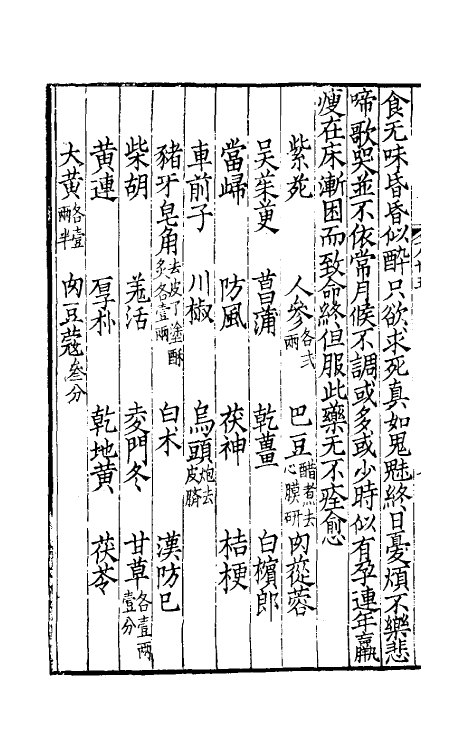 食无味昏昏似醉只欲求死真如鬼魅終日憂煩不樂悲
啼歌哭並不依常月候不調或多或少時似有孕連年羸
瘦在床漸困而致命終但服此藥无不痊愈
紫菀 人參各弍兩 巴豆醋煮去心膜研 肉蓯蓉
吳茱萸 菖蒲 乾薑 白檳郎
當歸 防風 茯神 桔梗
車前子 川椒 烏頭炮去皮臍
豬牙皂角去皮了塗酥炙各壹兩 白朮 漢防巳
柴胡 羌活 麦門冬 甘草各壹兩壹分
黄連 厚朴 乾地黄 茯苓
大黄各壹兩半 肉豆蔻叁分